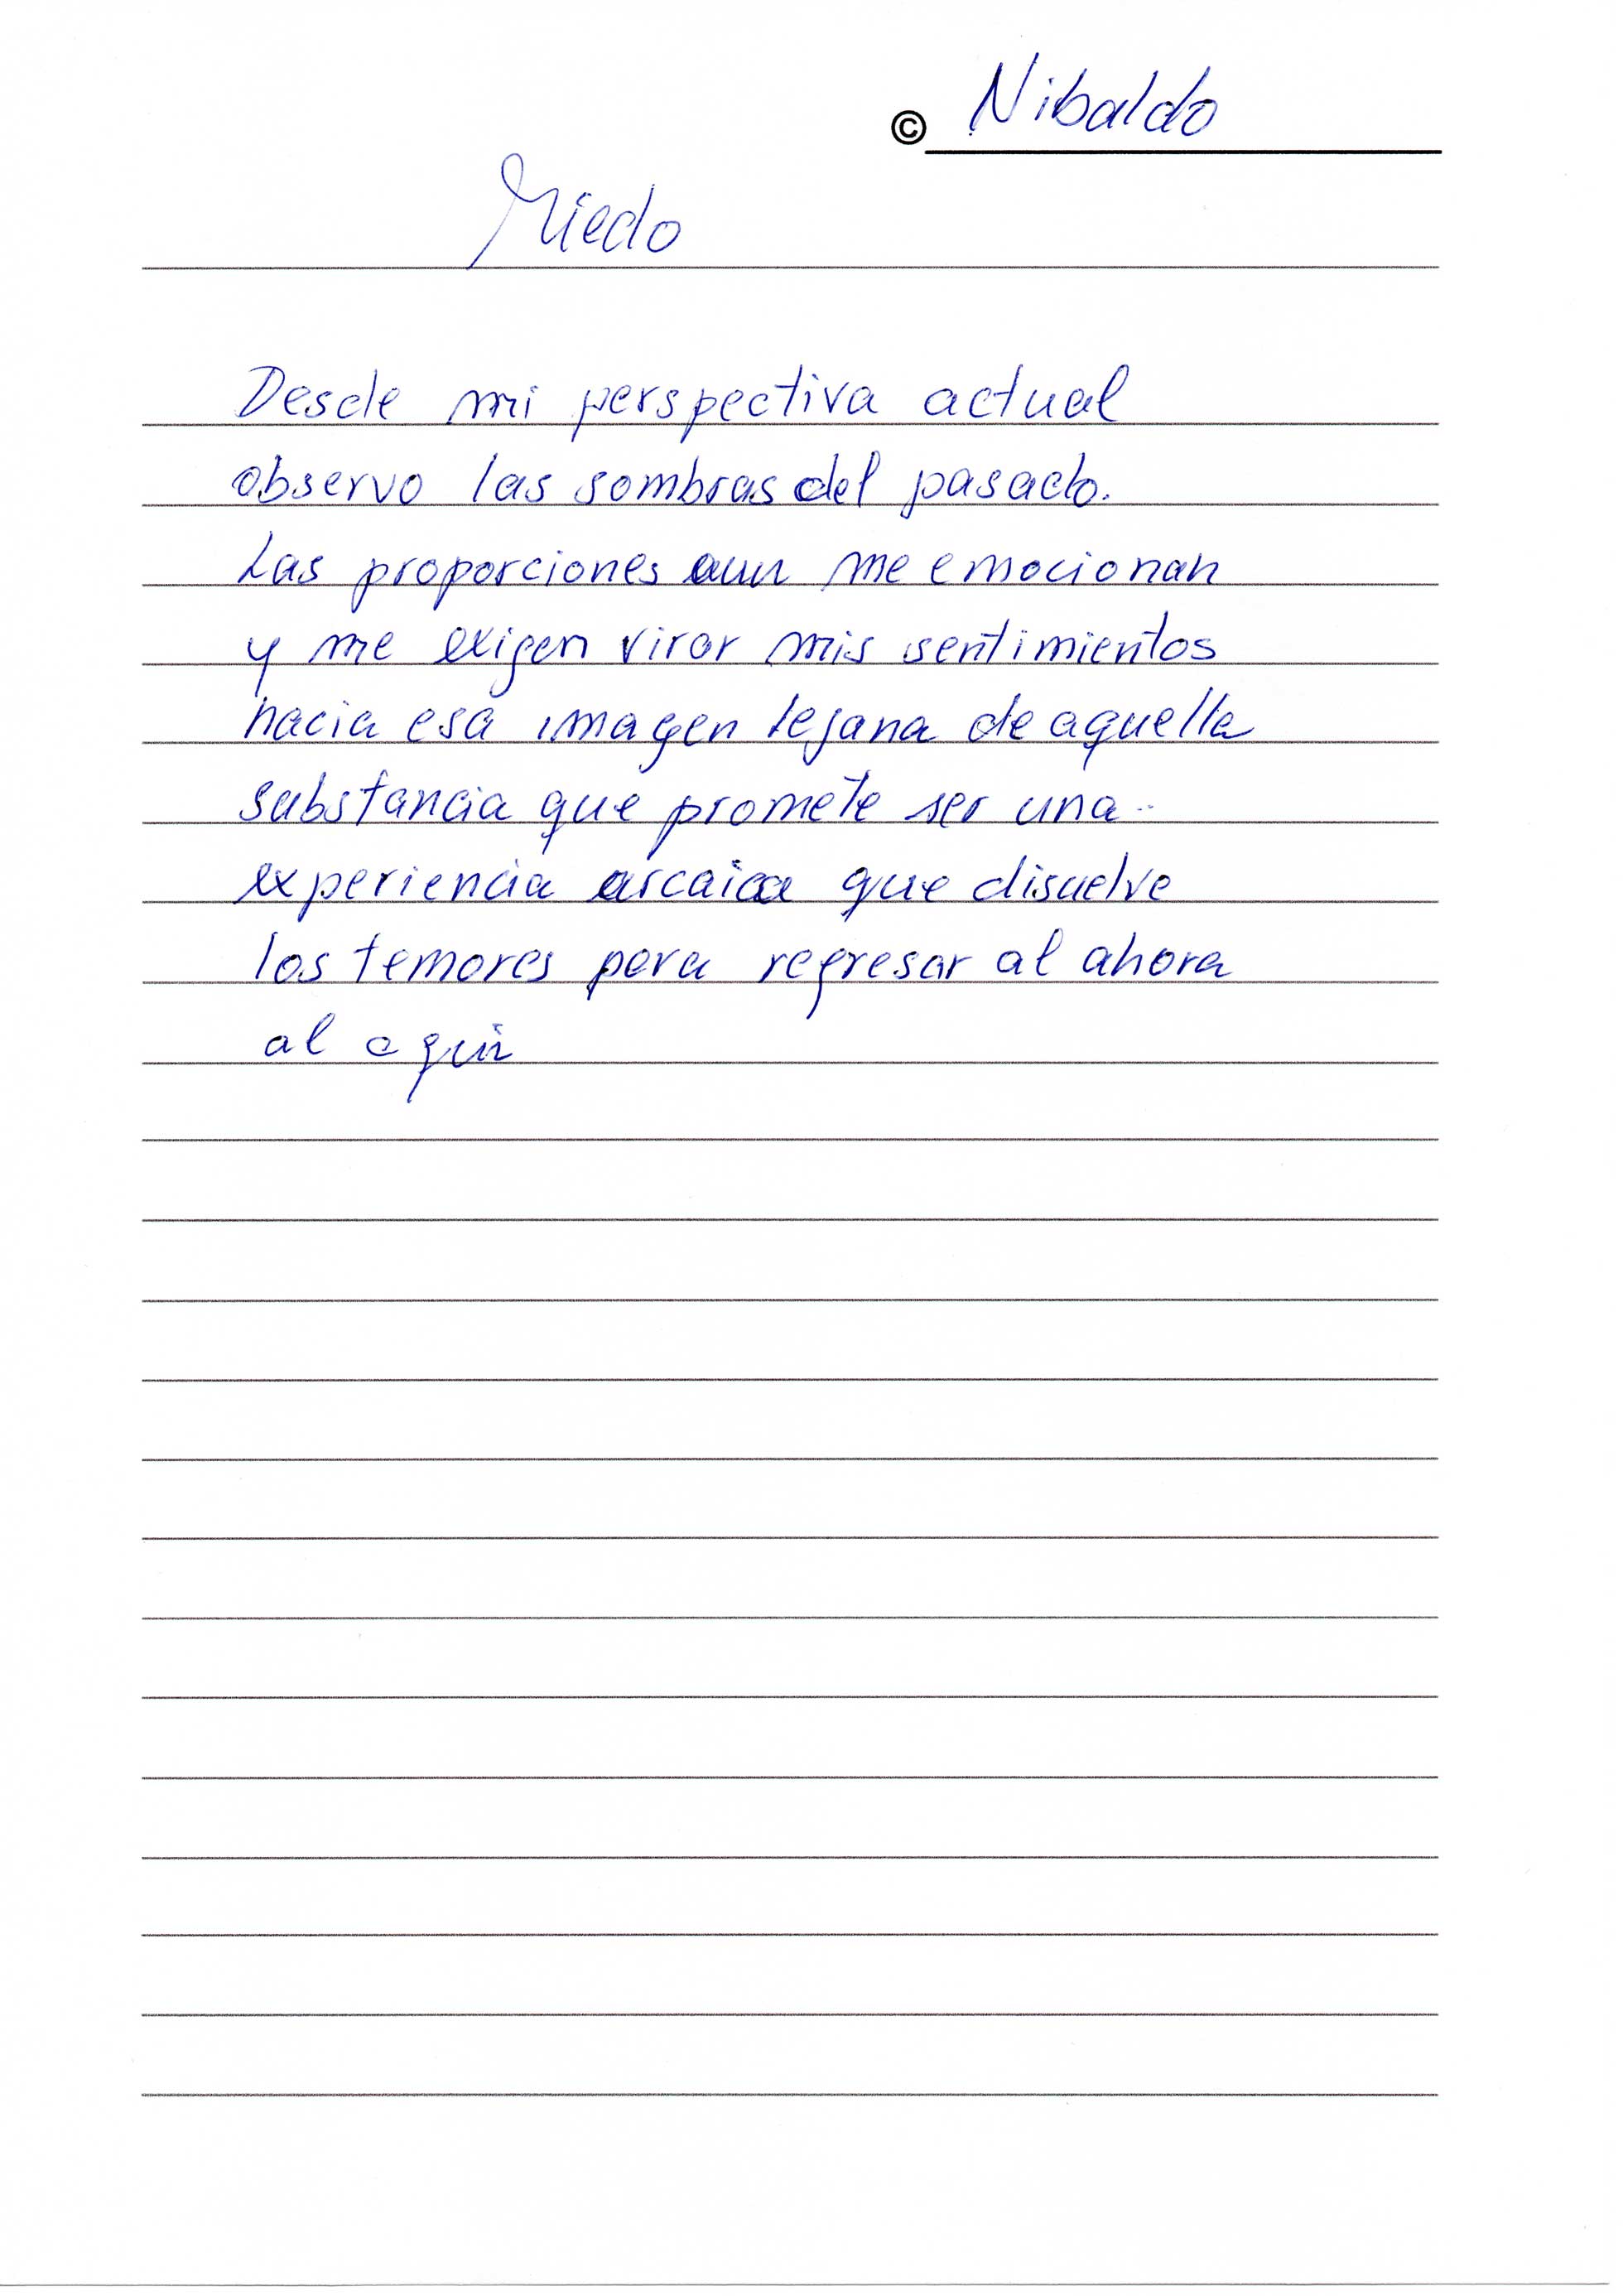 © Nibaldo
Miedo
Desde mi perspectiva actual
observo las sombras del pasado.
Las proporciones aun me emocionan
y me exigen virar mis sentimientos
hacia esa imagen lejana de aquella
substancia que promete ser una
experiencia arcaica que disuelve
los temores para regresar al ahora
al aquí